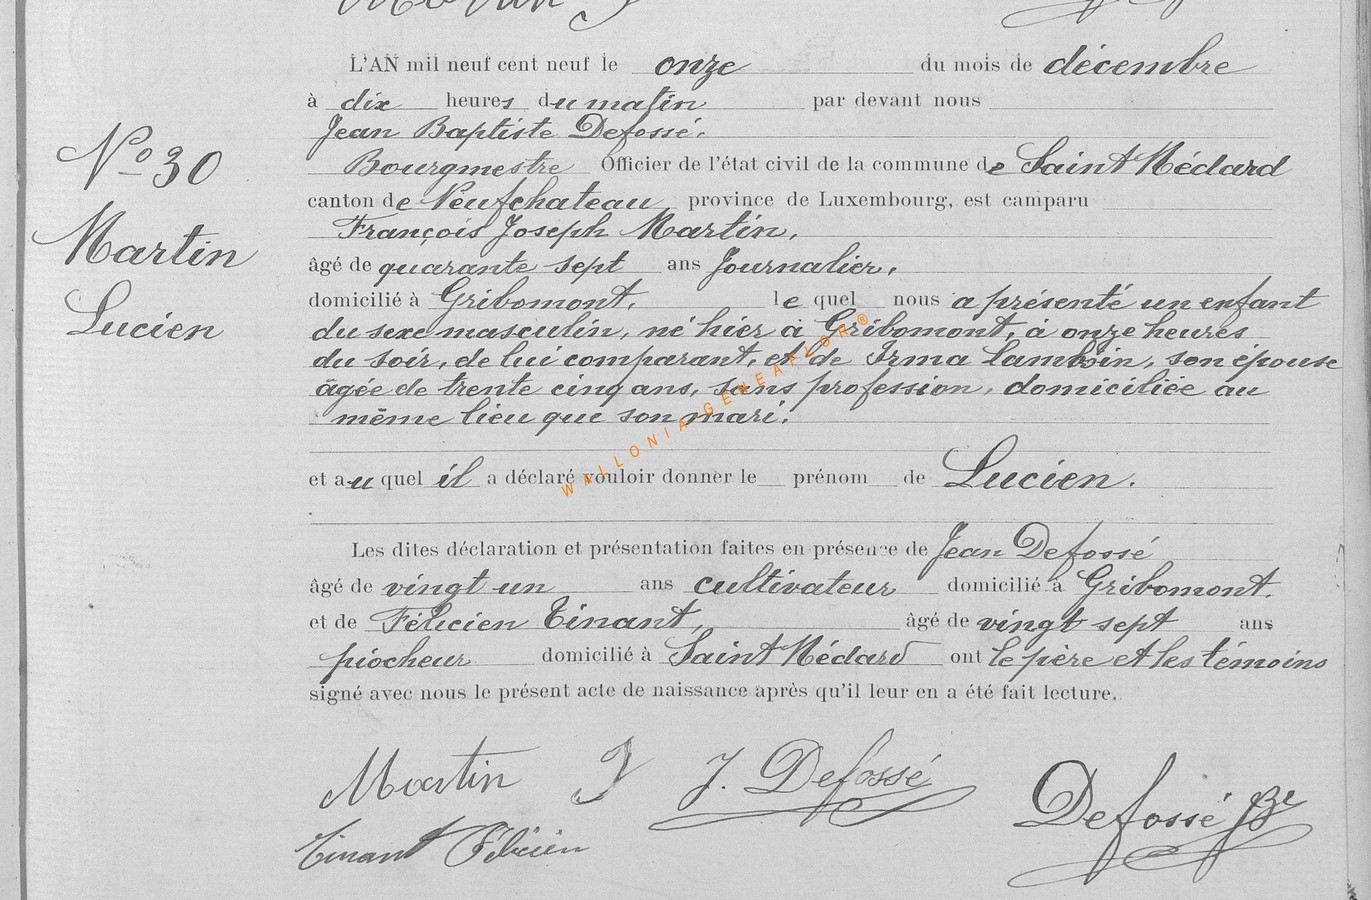 L'AN mil neuf cent neuf le onze du mois de décembre
à dix heures du matin par devant nous
Jean Baptiste Defossé.
Bourgmestre Officier de l'état civil de la commune de Saint Médard
canton de Neufchateau, province de Luxembourg, est comparu
François Joseph Martin,
âgé de quarante sept ans Journalier,
domicilié à Gribomont, le quel nous a présenté un enfant
du sexe masculin, né hier à Gribomont, à onze heures
du soir, de lui comparant, et de Irma Lambin, son épouse
âgée de trente cinq ans, sans profession, domiciliée au
même lieu que son mari.
et au quel il a déclaré vouloir donner le prénom de Lucien.
Les dites déclaration et présentation faites en présence de Jean Defossé
âgé de vingt un ans cultivateur domicilié à Gribomont.
et de Félicien Tinant, âgé de vingt sept ans
piocheur domicilié à Saint Médard ont le père et les témoins
signé avec nous le présent acte de naissance après qu'il leur en a été fait lecture.
Nº 30
Martin
Lucien
Martin J J. Defossé Defossé JBte
Tinant Félicien
WALLONIA GENEAFLOR®